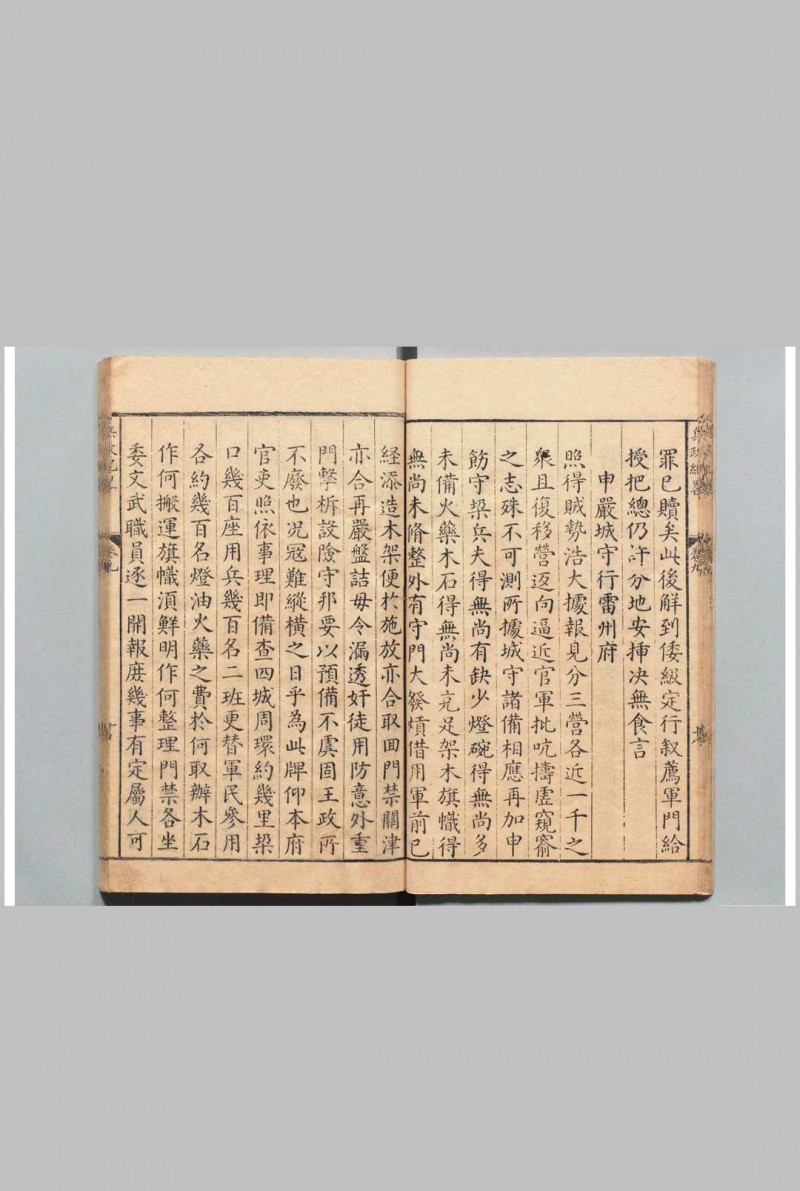 罪已贖矣此後解到倭級定行叙薦軍門給
授把總仍許分地安揷决無食言
申嚴城守行雷州府
照得賊勢浩大據報見分三營各近一千之
衆且復移營迈向逼近官軍批吭擣虚窺窬
之志殊不可測所據城守諸備相應再加申
飭守梁兵夫得無尚有缺少燈碗得無尚多
未備火藥木石得無尚未充足架木旗幟得
無尚未脩整外有守門大發熕借用軍前已
経添造木架便於施放亦合取回門禁關津
亦合再嚴盤詰毋令漏透奸徒用防意外重
門擊柝設險守邦要以預備不虞固王政所
不廢也况冦難縱横之日乎為此牌仰本府
官吏照依事理即備查四城周環約幾里梁
口幾百座用兵幾百名二班更替軍民參用
各約幾百名燈油火藥之費於何取辦木石
作何搬運旗幟湏鮮明作何整理門禁各坐
委文武職員逐一開報庻幾事有定屬人可